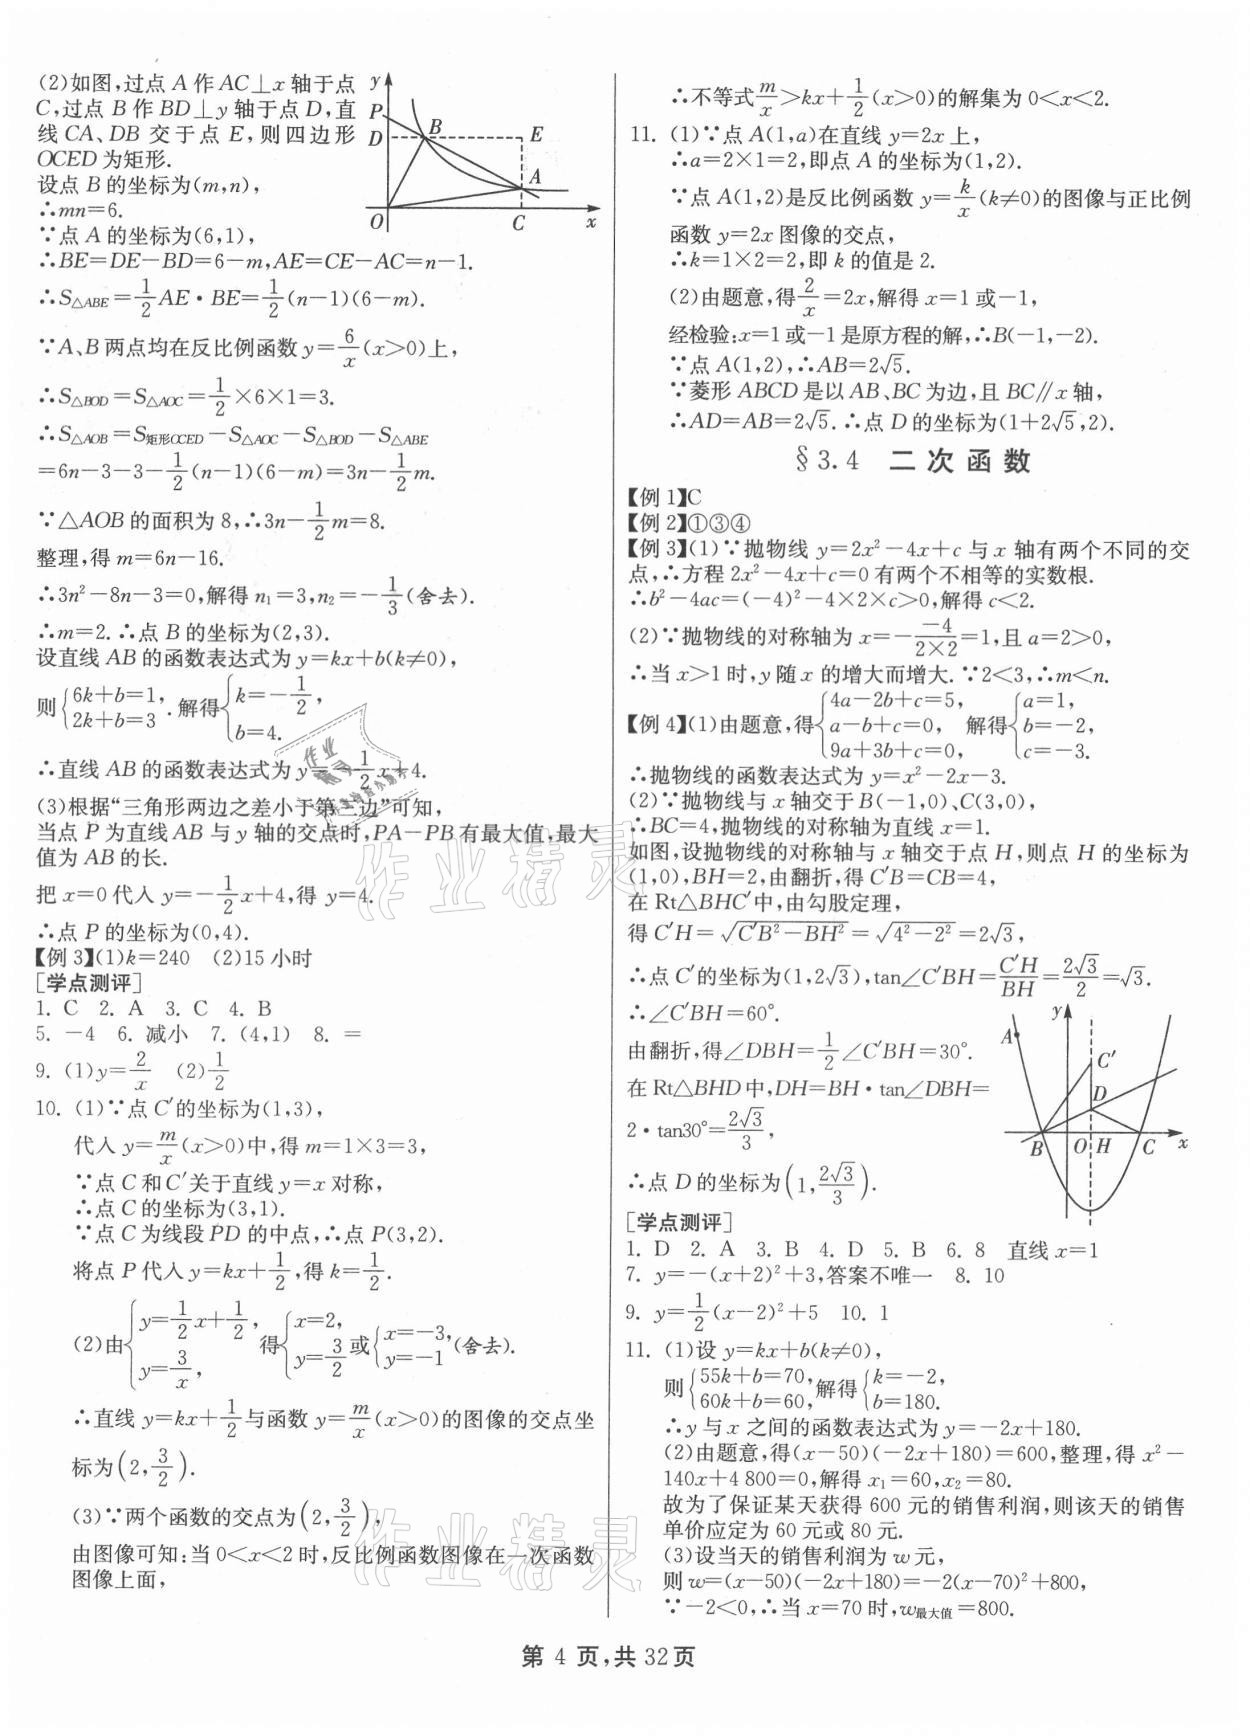 (2)如图,过点 A 作 AC⊥x 轴于点
C,过点 B 作 BD⊥y 轴于点 D,直
线 CA、DB 交于点 E,则四边形
OCED 为矩形.
设点 B 的坐标为(m,n),
∴mn=6.
∵点 A 的坐标为(6,1),
∴BE=DE-BD=6-m,AE=CE-AC=n-1.
∴S△ABE=1/2 AE·BE=1/2(n-1)(6-m).
∵A、B 两点均在反比例函数 y=6/x(x>0)上,
∴S△BOD=S△AOC=1/2×6×1=3.
∴S△AOB=S矩形OCED-S△AOC-S△BOD-S△ABE
=6n-3-3-1/2(n-1)(6-m)=3n-1/2 m.
∵△AOB 的面积为 8,∴3n-1/2 m=8.
整理,得 m=6n-16.
∴3n²-8n-3=0,解得 n₁=3,n₂=-1/3(舍去).
∴m=2.∴点 B 的坐标为(2,3).
设直线 AB 的函数表达式为 y=kx+b(k≠0),
则{6k+b=1, 2k+b=3 .解得{k=-1/2, b=4.
∴直线 AB 的函数表达式为 y=-1/2 x+4.
(3)根据“三角形两边之差小于第三边”可知,
当点 P 为直线 AB 与 y 轴的交点时,PA-PB 有最大值,最大
值为 AB 的长.
把 x=0 代入 y=-1/2 x+4,得 y=4.
∴点 P 的坐标为(0,4).
【例 3】(1)k=240 (2)15 小时
[学点测评]
1. C 2. A 3. C 4. B
5. -4 6. 减小 7. (4,1) 8. =
9. (1)y=2/x (2)1/2
10. (1)∵点 C′的坐标为(1,3),
代入 y=m/x(x>0)中,得 m=1×3=3,
∵点 C 和 C′关于直线 y=x 对称,
∴点 C 的坐标为(3,1).
∵点 C 为线段 PD 的中点,∴点 P(3,2).
将点 P 代入 y=kx+1/2,得 k=1/2.
(2)由{y=1/2 x+1/2, y=3/x, 得{x=2, y=3/2 或{x=-3, y=-1 (舍去).
∴直线 y=kx+1/2 与函数 y=m/x(x>0)的图像的交点坐
标为(2,3/2).
(3)∵两个函数的交点为(2,3/2),
由图像可知:当 0<x<2 时,反比例函数图像在一次函数
图像上面,
y
P
D
B
E
A
O
C
x
∴不等式m/x>kx+1/2(x>0)的解集为 0<x<2.
11. (1)∵点 A(1,a)在直线 y=2x 上,
∴a=2×1=2,即点 A 的坐标为(1,2).
∵点 A(1,2)是反比例函数 y=k/x(k≠0)的图像与正比例
函数 y=2x 图像的交点,
∴k=1×2=2,即 k 的值是 2.
(2)由题意,得2/x=2x,解得 x=1 或-1,
经检验:x=1 或-1 是原方程的解,∴B(-1,-2).
∵点 A(1,2),∴AB=2√5.
∵菱形 ABCD 是以 AB、BC 为边,且 BC∥x 轴,
∴AD=AB=2√5.∴点 D 的坐标为(1+2√5,2).
§3.4 二次函数
【例 1】C
【例 2】①③④
【例 3】(1)∵抛物线 y=2x²-4x+c 与 x 轴有两个不同的交
点,∴方程 2x²-4x+c=0 有两个不相等的实数根.
∴b²-4ac=(-4)²-4×2×c>0,解得 c<2.
(2)∵抛物线的对称轴为 x=--4/2×2=1,且 a=2>0,
∴当 x>1 时,y 随 x 的增大而增大.∵2<3,∴m<n.
【例 4】(1)由题意,得{4a-2b+c=5, a-b+c=0, 9a+3b+c=0, 解得{a=1, b=-2, c=-3.
∴抛物线的函数表达式为 y=x²-2x-3.
(2)∵抛物线与 x 轴交于 B(-1,0)、C(3,0),
∴BC=4,抛物线的对称轴为直线 x=1.
如图,设抛物线的对称轴与 x 轴交于点 H,则点 H 的坐标为
(1,0),BH=2,由翻折,得 C′B=CB=4,
在 Rt△BHC′中,由勾股定理,
得 C′H=√(C′B²-BH²)=√(4²-2²)=2√3,
∴点 C′的坐标为(1,2√3),tan∠C′BH=C′H/BH=2√3/2=√3.
∴∠C′BH=60°.
由翻折,得∠DBH=1/2∠C′BH=30°.
在 Rt△BHD 中,DH=BH·tan∠DBH=
2·tan30°=2√3/3,
∴点 D 的坐标为(1,2√3/3).
y
A
C′
D
B
O
H
C
x
[学点测评]
1. D 2. A 3. B 4. D 5. B 6. 8 直线 x=1
7. y=-(x+2)²+3,答案不唯一 8. 10
9. y=1/2(x-2)²+5 10. 1
11. (1)设 y=kx+b(k≠0),
则{55k+b=70, 60k+b=60, 解得{k=-2, b=180.
∴y 与 x 之间的函数表达式为 y=-2x+180.
(2)由题意,得(x-50)(-2x+180)=600,整理,得 x²-
140x+4 800=0,解得 x₁=60,x₂=80.
故为了保证某天获得 600 元的销售利润,则该天的销售
单价应定为 60 元或 80 元.
(3)设当天的销售利润为 w 元,
则 w=(x-50)(-2x+180)=-2(x-70)²+800,
∵-2<0,∴当 x=70 时,w最大值=800.
作业精灵
作业精灵
第 4 页,共 32页